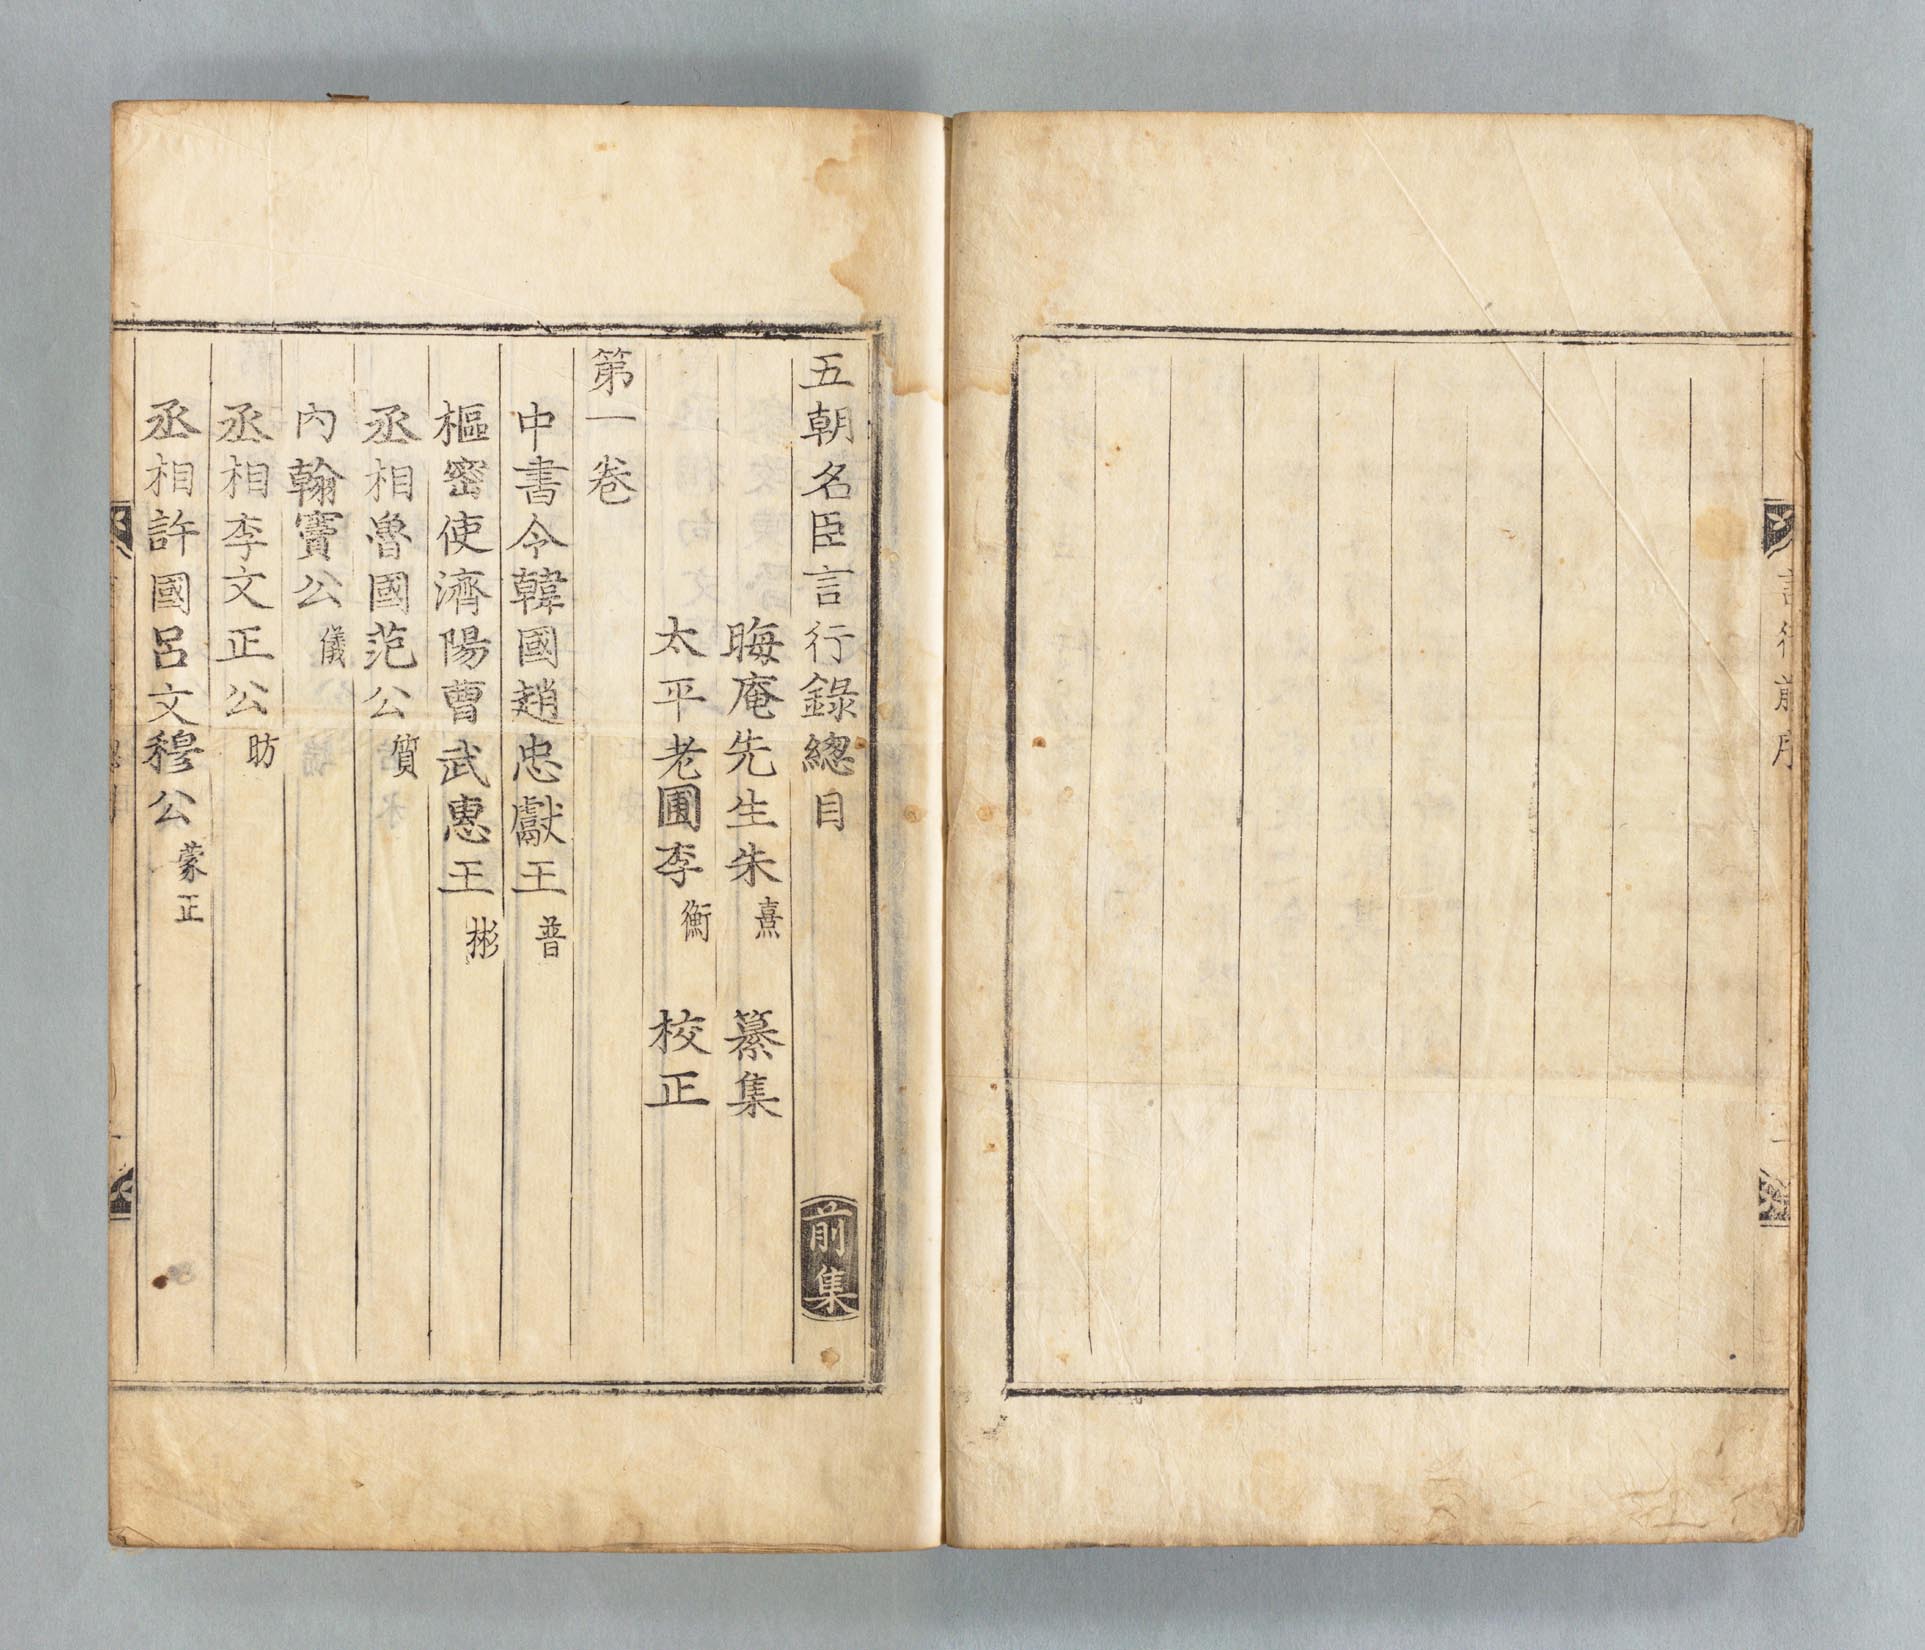 言行前序
一
五朝名臣言行錄總目 前集
晦庵先生朱熹 纂集
太平老圃李衡 校正
第一卷
中書令韓國趙忠獻王普
樞密使濟陽曹武惠王彬
丞相魯國范公質
內翰竇公儀
丞相李文正公昉
丞相許國呂文穆公蒙正